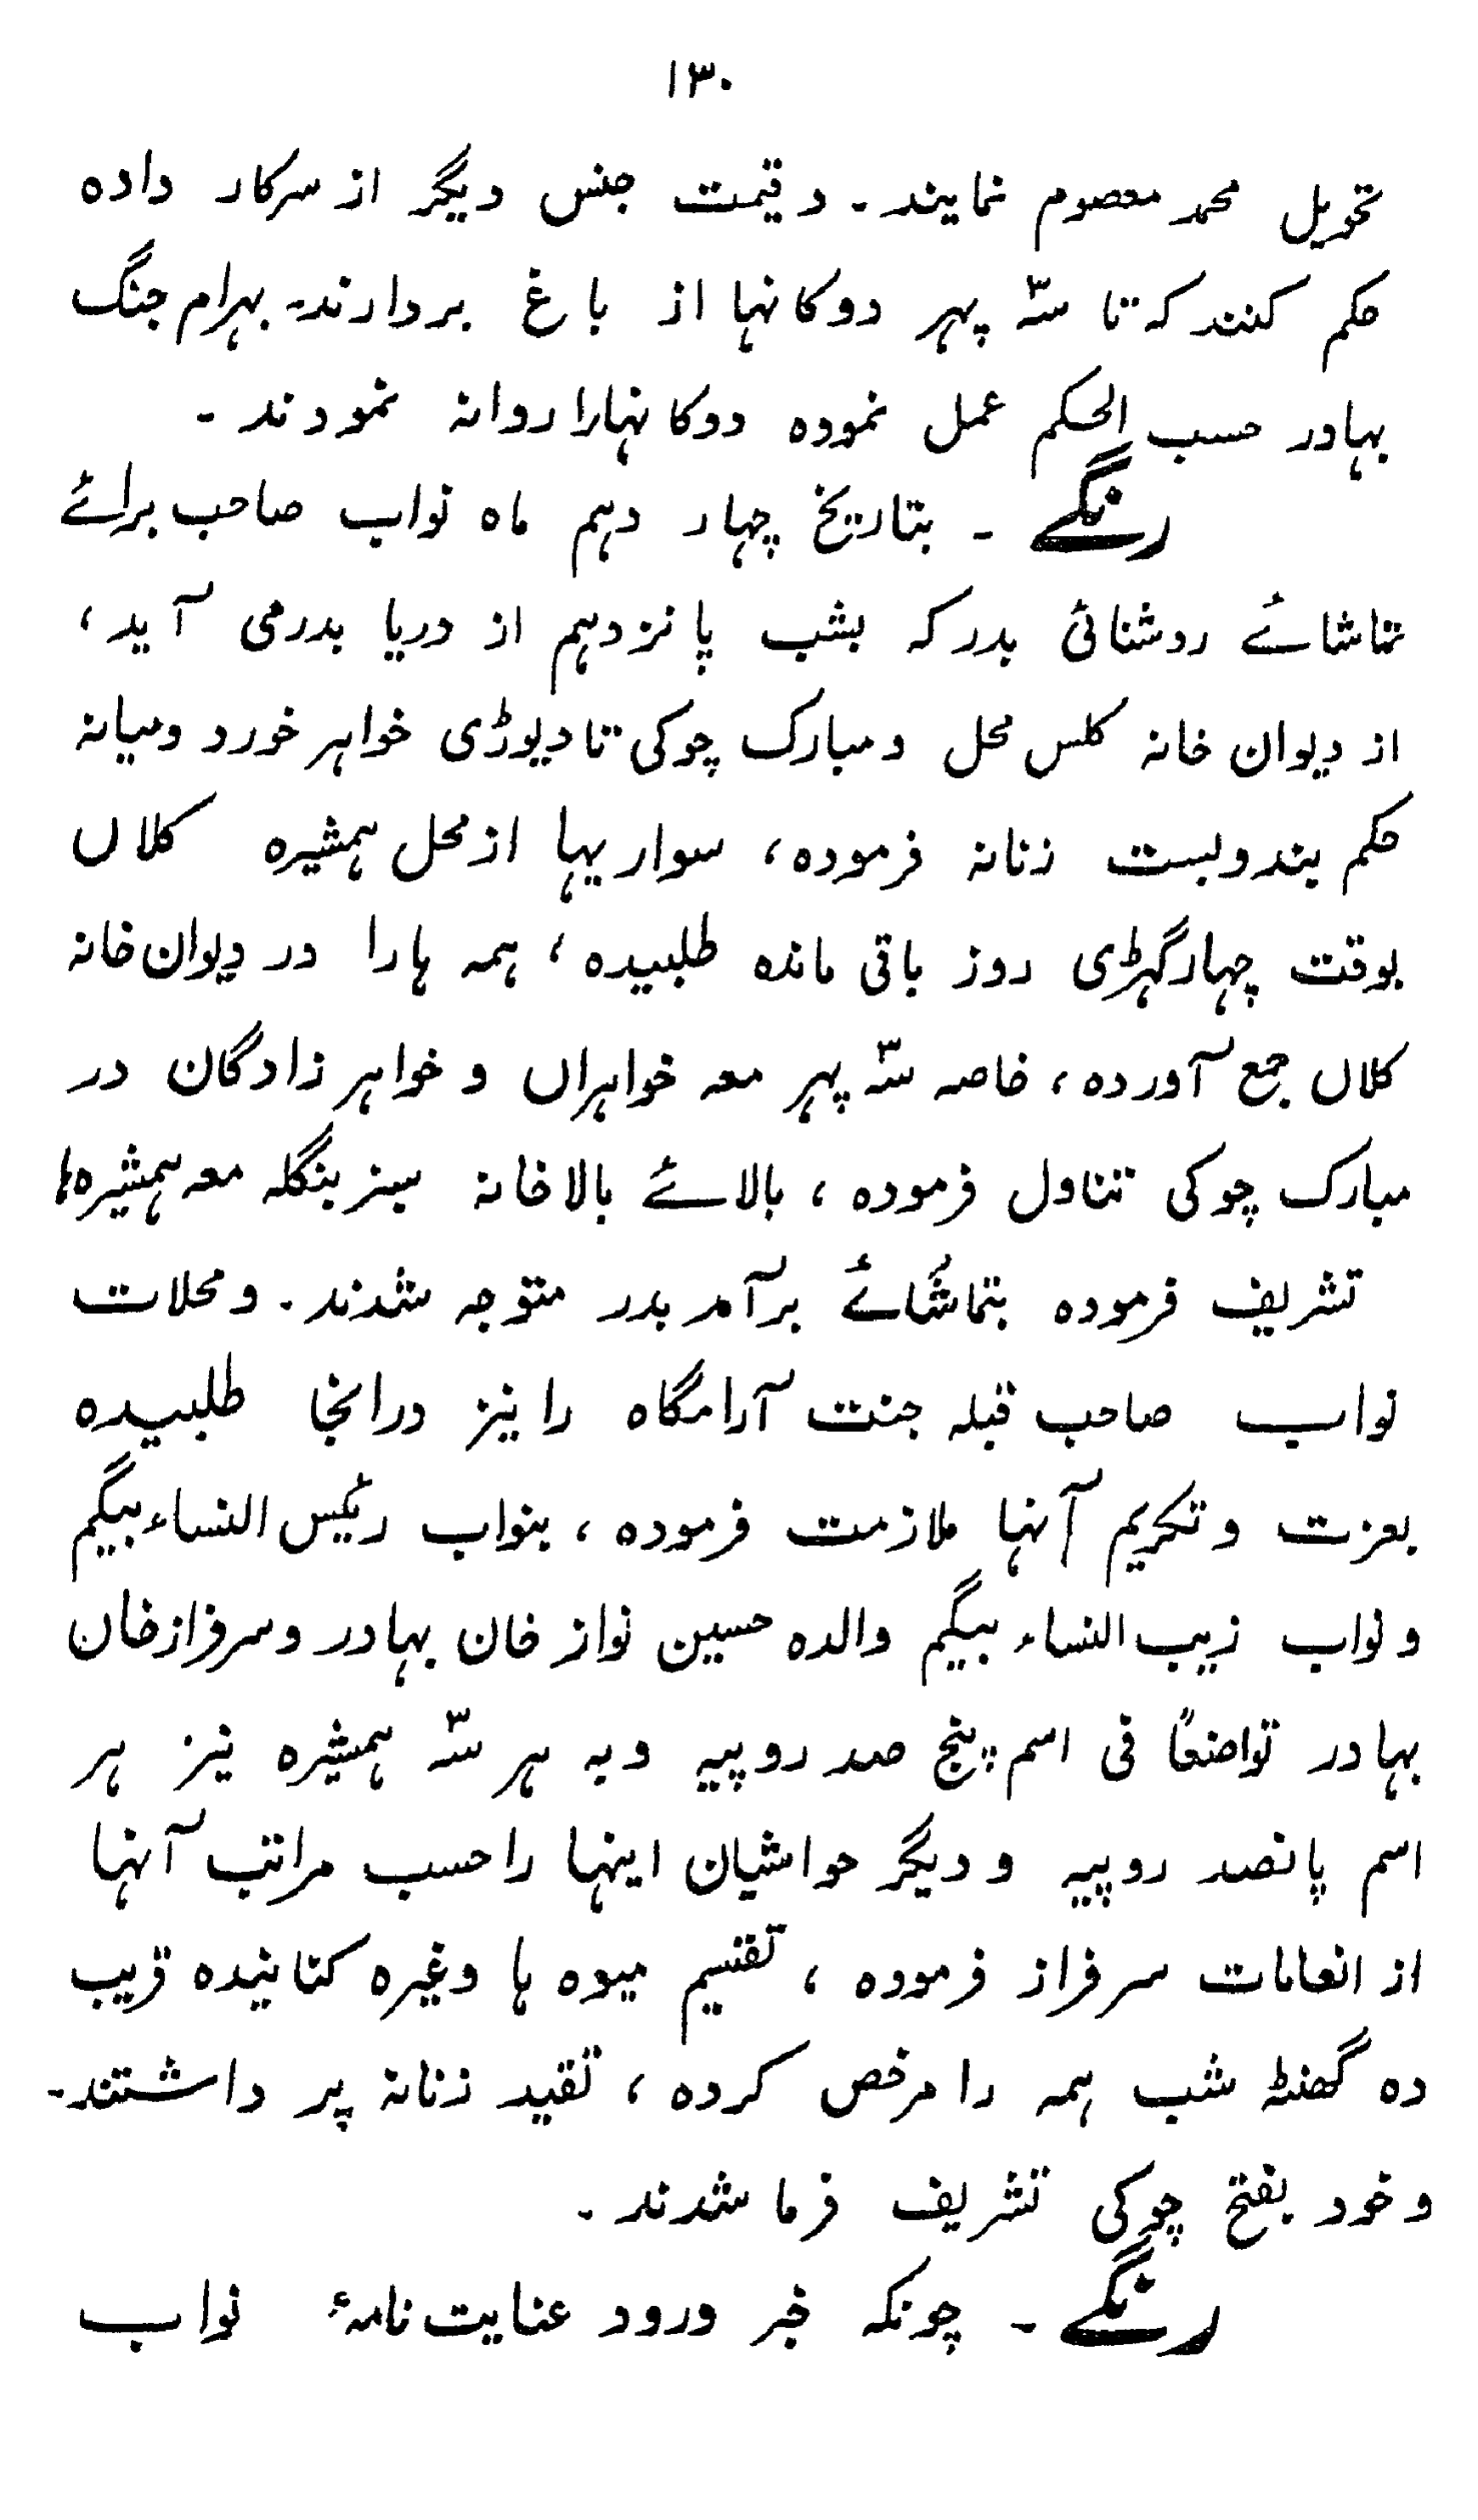 ۱۳۰
تحویل محمد معصوم نمایند۔ وقیمت جنس دیگر از سرکار داده
حکم کنند کہ تا سہّ پہر دوکانہا از باغ بردارند۔ بہرام جنگ
بہادر حسب الحکم عمل نموده دوکانہارا روانہ نمودند۔
رنگے ۔ بتاریخ چہار دہم ماه نواب صاحب برائے
تماشائے روشنائی بدر کہ بشب پانزدہم از دریا بدرمی آید،
از دیوان خانہ کلس محل و مبارک چوکی تا دیوڑی خواہر خورد و میانہ
حکم بندوبست زنانہ فرموده، سواریہا از محل ہمشیره کلاں
بوقت چہار گہڑی روز باقی مانده طلبیده، ہمہ ہارا در دیوان خانہ
کلاں جمع آورده، خاصہ سہّ پہر معہ خواہراں و خواہر زادگان در
مبارک چوکی تناول فرموده، بالائے بالاخانہ سبز بنگلہ معہ ہمشیره ہا
تشریف فرموده بتماشائے برآمد بدر متوجہ شدند۔ و محلات
نواب صاحب قبلہ جنت آرامگاه را نیز درانجا طلبیده
بعزت و تکریم آنہا ملازمت فرموده، بنواب رئیس النساء بیگم
و نواب زیب النساء بیگم والده حسین نواز خان بہادر و سرفراز خان
بہادر تواضعاً فی اسم پنج صد روپیہ و بہ ہر سہّ ہمشیره نیز ہر
اسم پانصد روپیہ و دیگر حواشیان اینہا را حسب مراتب آنہا
از انعامات سرفراز فرموده، تقسیم میوه ہا وغیره کنانیده قریب
ده گھنٹہ شب ہمہ را مرخص کرده، تقید زنانہ پر داشتند۔
و خود بفتح چوکی تشریف فرما شدند۔
رنگے ۔ چونکہ خبر ورود عنایت نامۂ نواب